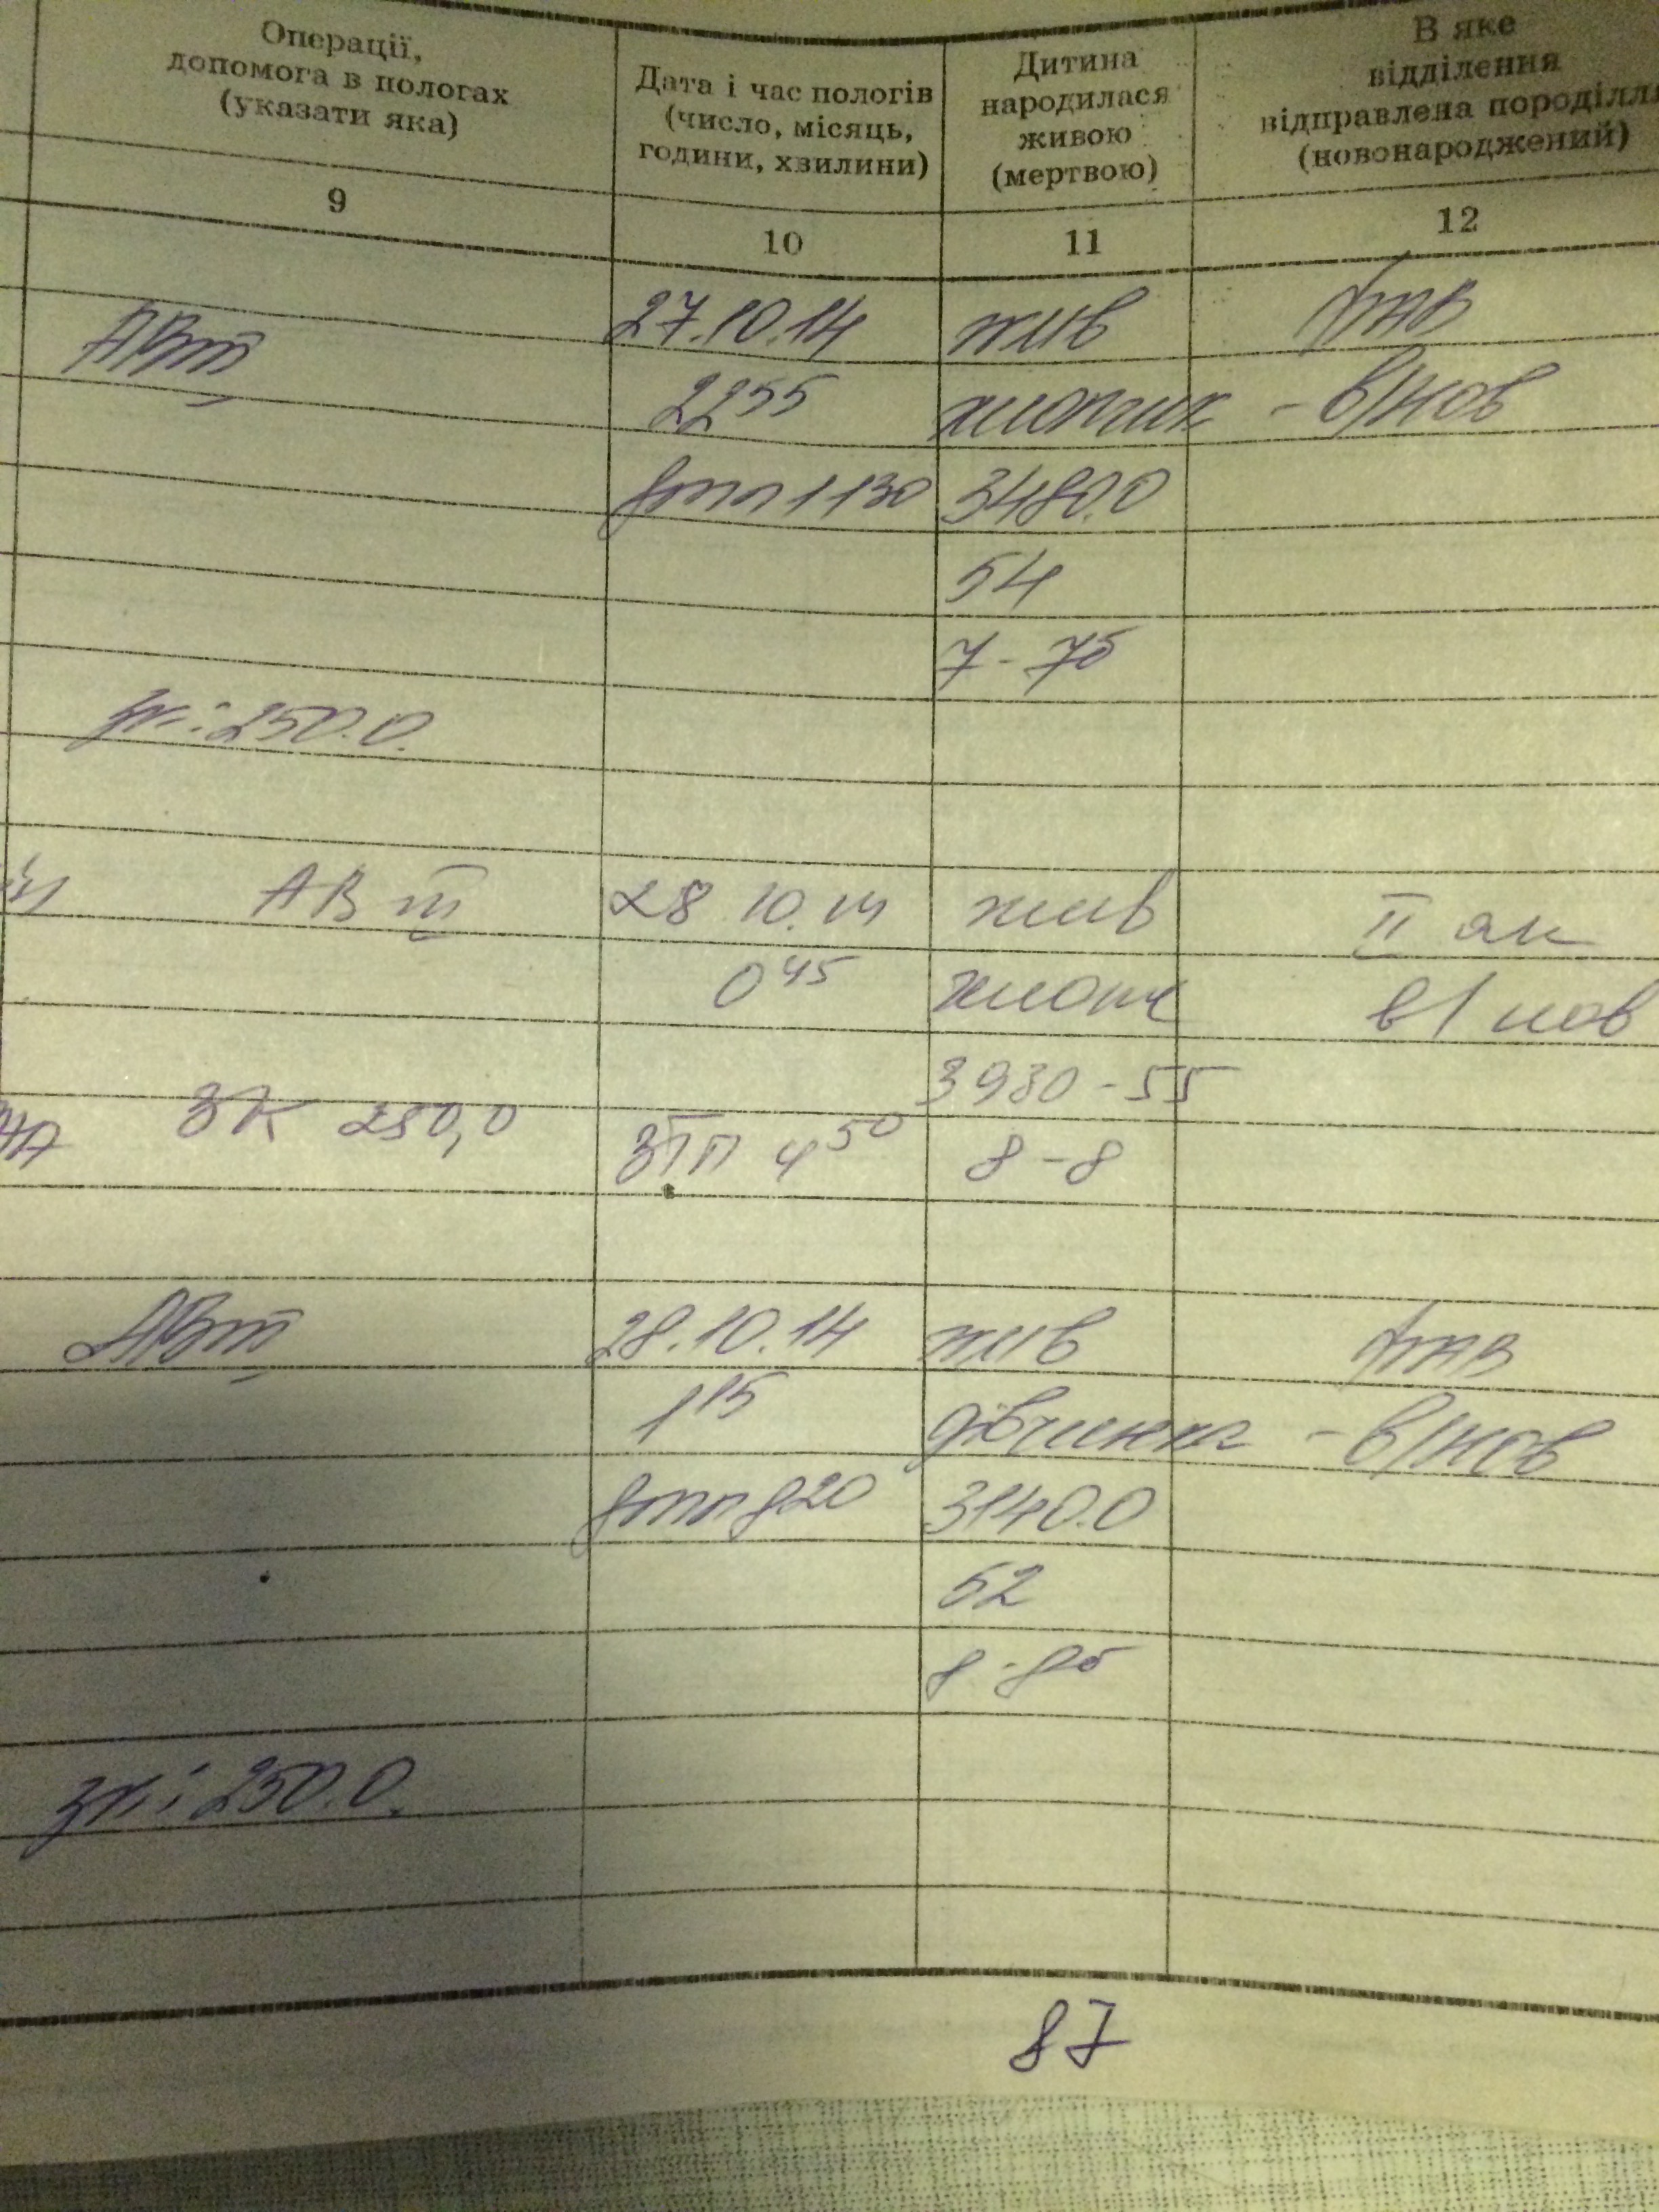 Операції,
допомога в пологах
(указати яка)
Дата і час пологів
(число, місяць,
години, хвилини)
Дитина
народилася
живою
(мертвою)
В яке
відділення
відправлена породілля
(новонароджений)
9 10 11 12
АВТ 27.10.14 жив
22 55 хлопчик - в/нов
11 30 3480.0
54
7-7б
зк: 250.0.
АВ т 28 10.14 жив II ак
0 45 хлопч в/нов
3930-55
ЗК 250,0 ЗПП 4 50 8-8
АВт 28.10.14 жив
1 15 дівчинка - в/нов
8 20 3140.0
52
8-8б
зк: 250.0.
87